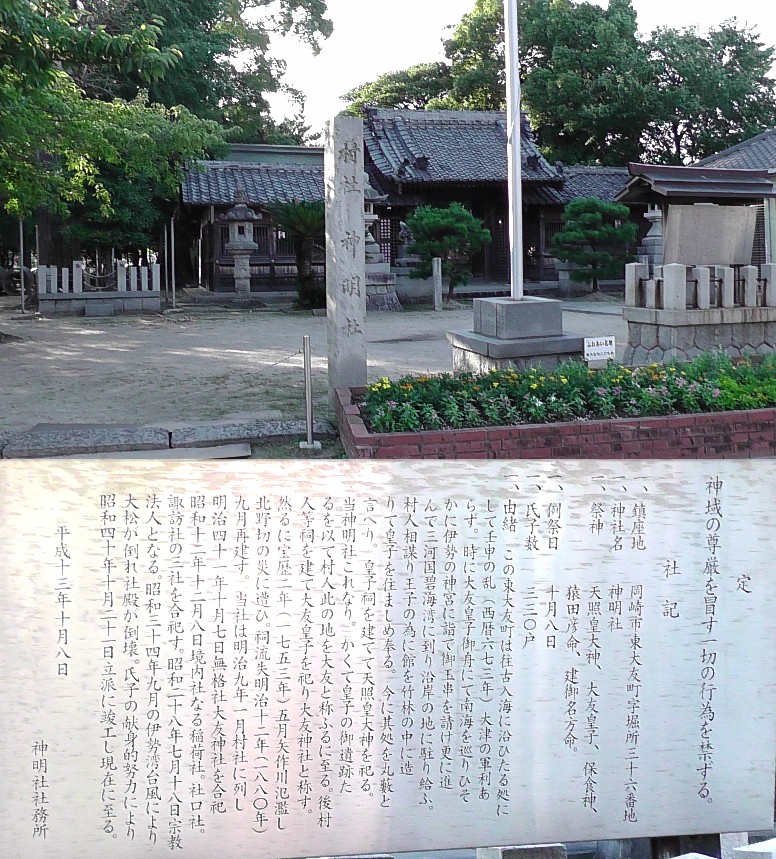 村社 神明社
ふれあい花壇
定
神域の尊厳を冒す一切の行為を禁ずる。
社記
一、鎮座地 岡崎市東大友町字堀所二十六番地
一、神社名 神明社
一、祭神 天照皇大神、大友皇子、保食神、
猿田彦命、建御名方命。
一、例祭日 十月八日
一、氏子数 三三〇戸
一、由緒 この東大友町は往古入海に沿ひたる処に
して壬申の乱(西暦六七三年)大津の軍利あ
らず。時に大友皇子御舟にて南海を巡りひそ
かに伊勢の神宮に詣で御玉串を請け更に進
んで三河国碧海湾に到り沿岸の地に駐り給ふ。
村人相謀り王子の為に館を竹林の中に造
りて皇子を住ましめ奉る。今に其処を丸藪と
言へり。皇子祠を建てて天照皇大神を祀る。
当神明社これなり。かくて皇子の御遺跡た
るを以て村人此の地を大友と称ふるに至る。後村
人等祠を建て大友皇子を祀り大友神社と称す。
然るに宝歴二年(一七五三年)五月矢作川氾濫し
北野切の災に遭ひ。祠流失明治十二年(一八八〇年)
九月再建す。当社は明治九年一月村社に列し
明治四十一年十月七日無格社大友神社を合祀
昭和十二年十二月八日境内社なる稲荷社。社口社。
諏訪社の三社を合祀す。昭和二十八年七月十八日宗教
法人となる。昭和三十四年九月の伊勢湾台風により
大松が倒れ社殿が倒壊。氏子の献身的努力により
昭和四十年十月二十一日立派に竣工し現在に至る。
平成十三年十月八日
神明社社務所